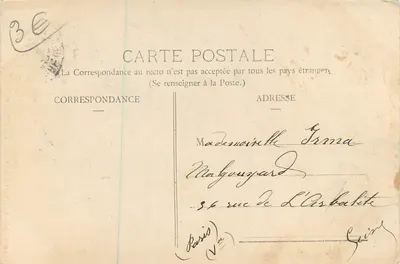 3€
CARTE POSTALE
La Correspondance au recto n'est pas acceptée par tous les pays étrangers
(Se renseigner à la Poste.)
CORRESPONDANCE
ADRESSE
Mademoiselle Irma
36 rue de L'Arbalète
(Paris)
(Ve)
Seine